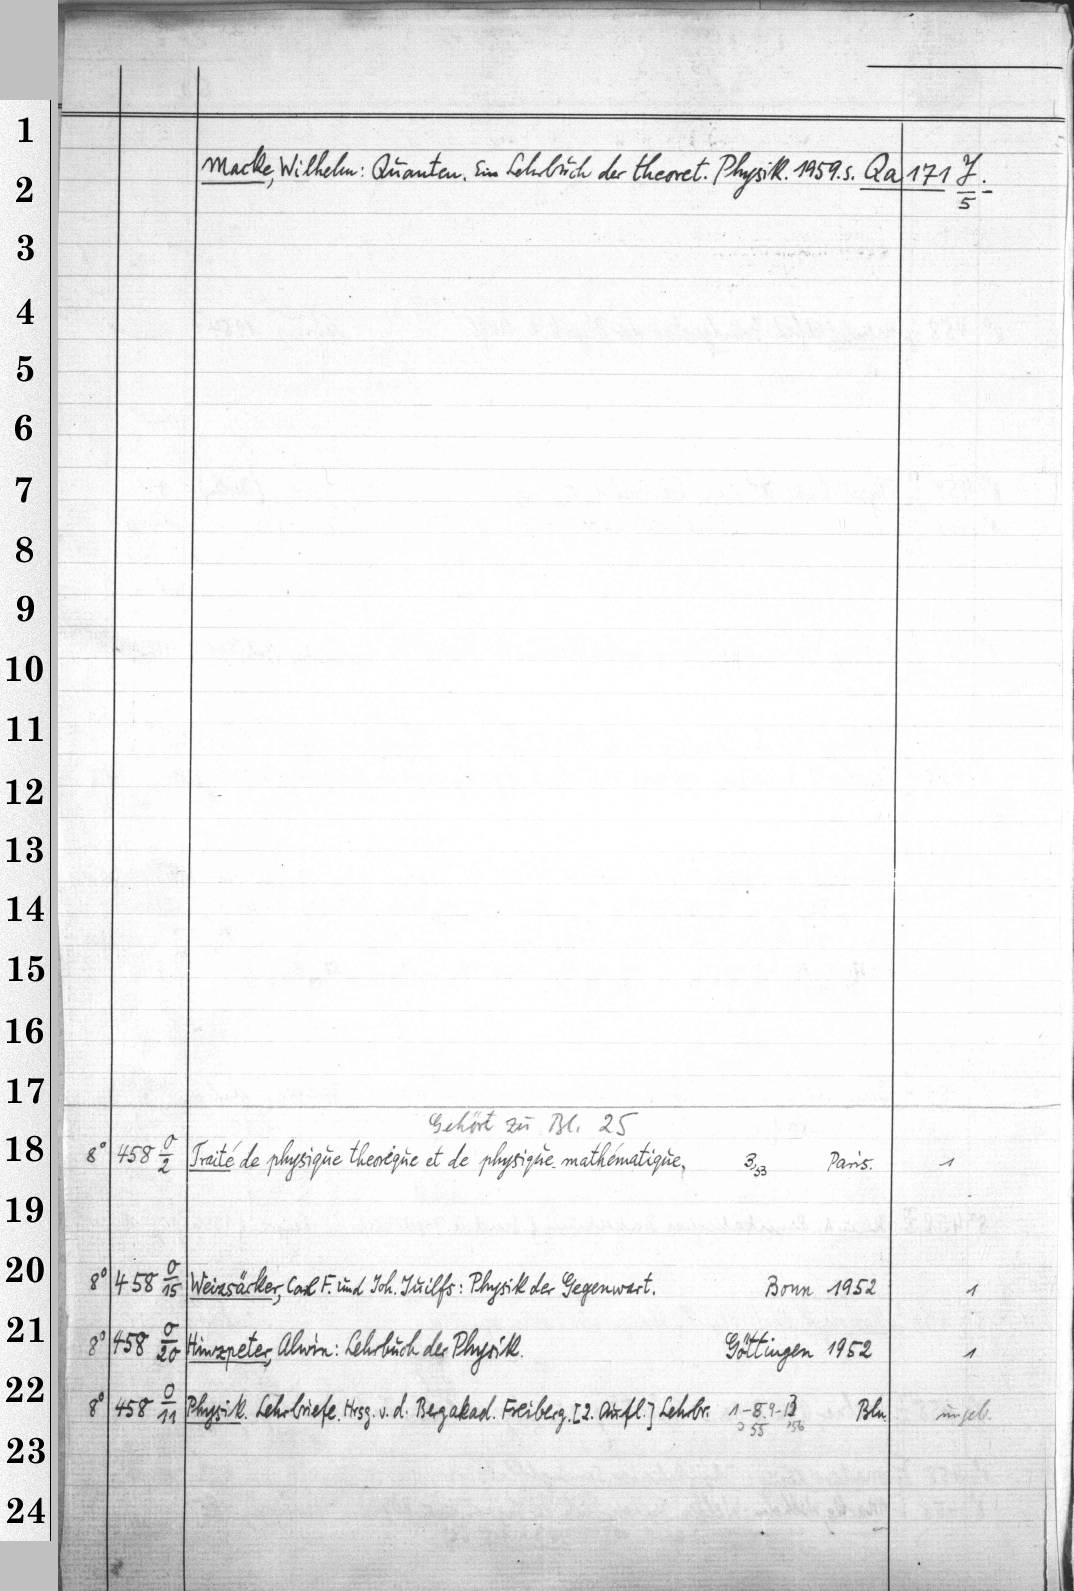 1
Macke, Wilhelm: Quanten. Ein Lehrbuch der theoret. Physik. 1959. s. Qa 171 J/5.-
2
3
4
5
6
7
8
9
10
11
12
13
14
15
16
17
Gehört zu Bl. 25
18 8° 458 O/2 Traité de physique theorique et de physique mathématique, 3,53 Paris. 1
19
20 8° 458 O/15 Weizsäcker, Carl F. und Joh. Juilfs: Physik der Gegenwart. Bonn 1952 1
21 8° 458 O/20 Hinzpeter, Alwin: Lehrbuch der Physik. Göttingen 1952 1
22 8° 458 O/11 Physik. Lehrbriefe. Hrsg. v. d. Bergakad. Freiberg. [2. Aufl.] Lehrbr. 1-8. 9-13 Bln. ungeb.
55 56
23
24